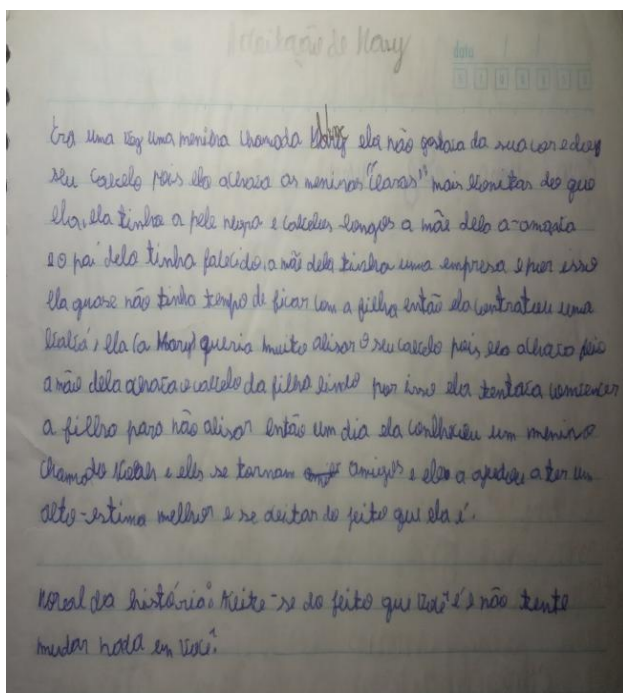 Aceitação de Mary
data
Era uma vez uma menina chamada Mary ela não gostava da sua cor e do
seu cabelo pois ela achava as meninas "claras" mais bonitas do que
ela, ela tinha a pele negra e cabelos longos a mãe dela a-amava
e o pai dela tinha falecido, a mãe dela tinha uma empresa e por isso
ela quase não tinha tempo de ficar com a filha então ela contratou uma
babá, ela (a Mary) queria muito alisar o seu cabelo pois ela achava feio
a mãe dela achava o cabelo da filha lindo por isso ela tentava convencer
a filha para não alisar então um dia ela conheceu um menino
chamado Noah e eles se tornam amigos e ele a ajudou a ter um
alto-estima melhor e se aceitar do jeito que ela é.
Moral da história: Aceite-se do jeito que você é e não tente
mudar nada em você.